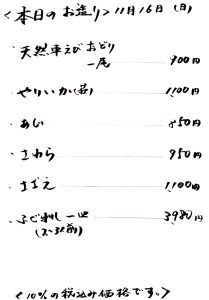 <本日のお造り> 11月16日(日)
・天然車えび おどり
一尾 900円
・やりいか(若) 1,100円
・あじ 850円
・さわら 950円
・さざえ 1,100円
・ふぐ刺し 一皿 3,980円
(2~3人前)
<10%の税込み価格です。>